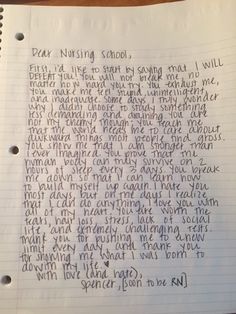 Dear Nursing School,
First, i'd like to start by saying that I WILL
DEFEAT you! You will not break me, no
matter how hard you try. You exhaust me,
you make me feel stupid, unintelligent,
and inadequate. Some days I truly wonder
why I didn't choose to study something
less demanding and draining. You are
not my enemy though; you teach me
that the world needs me to care about
awkward things most people find gross.
You show me that I am stronger than
I ever imagined. You prove that the
human body can truly survive on 2
hours of sleep every 3 days. You break
me down so that I can learn how
to build myself up again. I hate you
most days, but on the days I realize
that I can do anything, I love you with
all of my heart. You are worth the
tears, hair loss, stress, lack of social
life and extremely challenging tests.
Thank you for pushing me to a new
limit every day, and thank you
for showing me what I was born to
do with my life. ♥
with love (and hate),
Spencer, [soon to be RN]